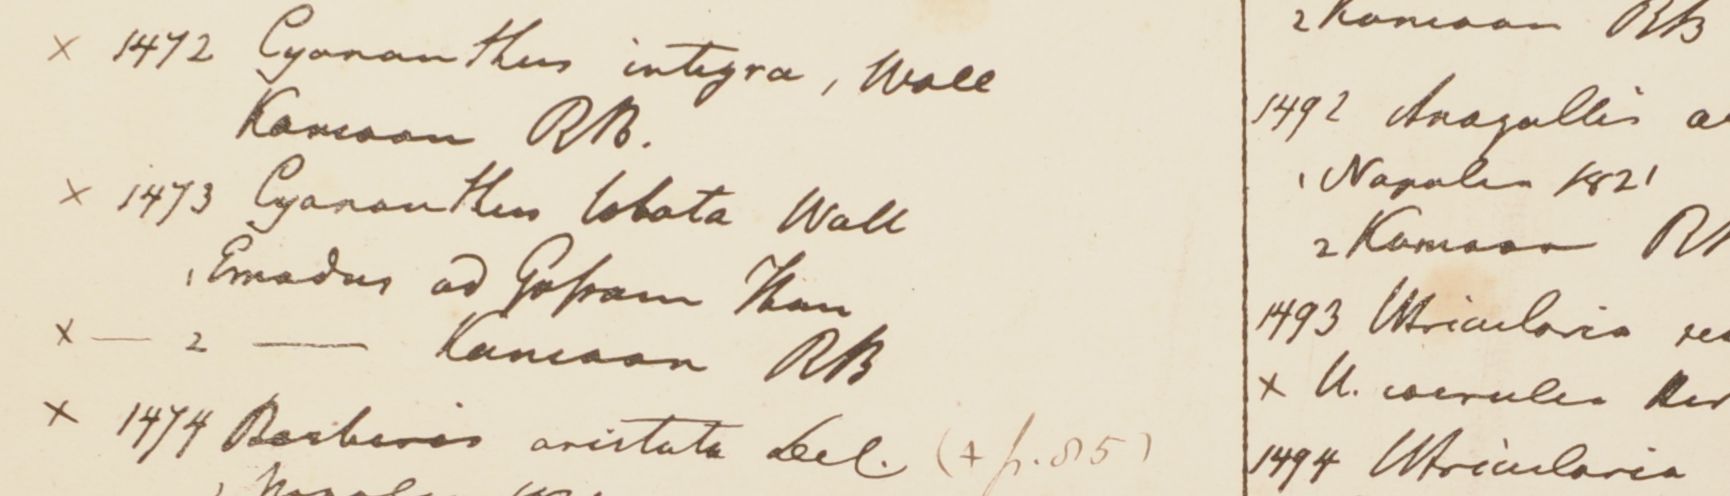 x 1472 Cyananthus integra, Wall
Kamaon RB.
x 1473 Cyananthus lobata Wall
1 Emodus ad Gossain Than
x — 2 — Kamaon RB
x 1474 Berberis aristata Dec. (+ p. 85)
2 Kamaon RB
1492 Anagallis
1 Napalia 1821
2 Kamaon
1493 Utricularia
x U. coerulea
1494 Utricularia